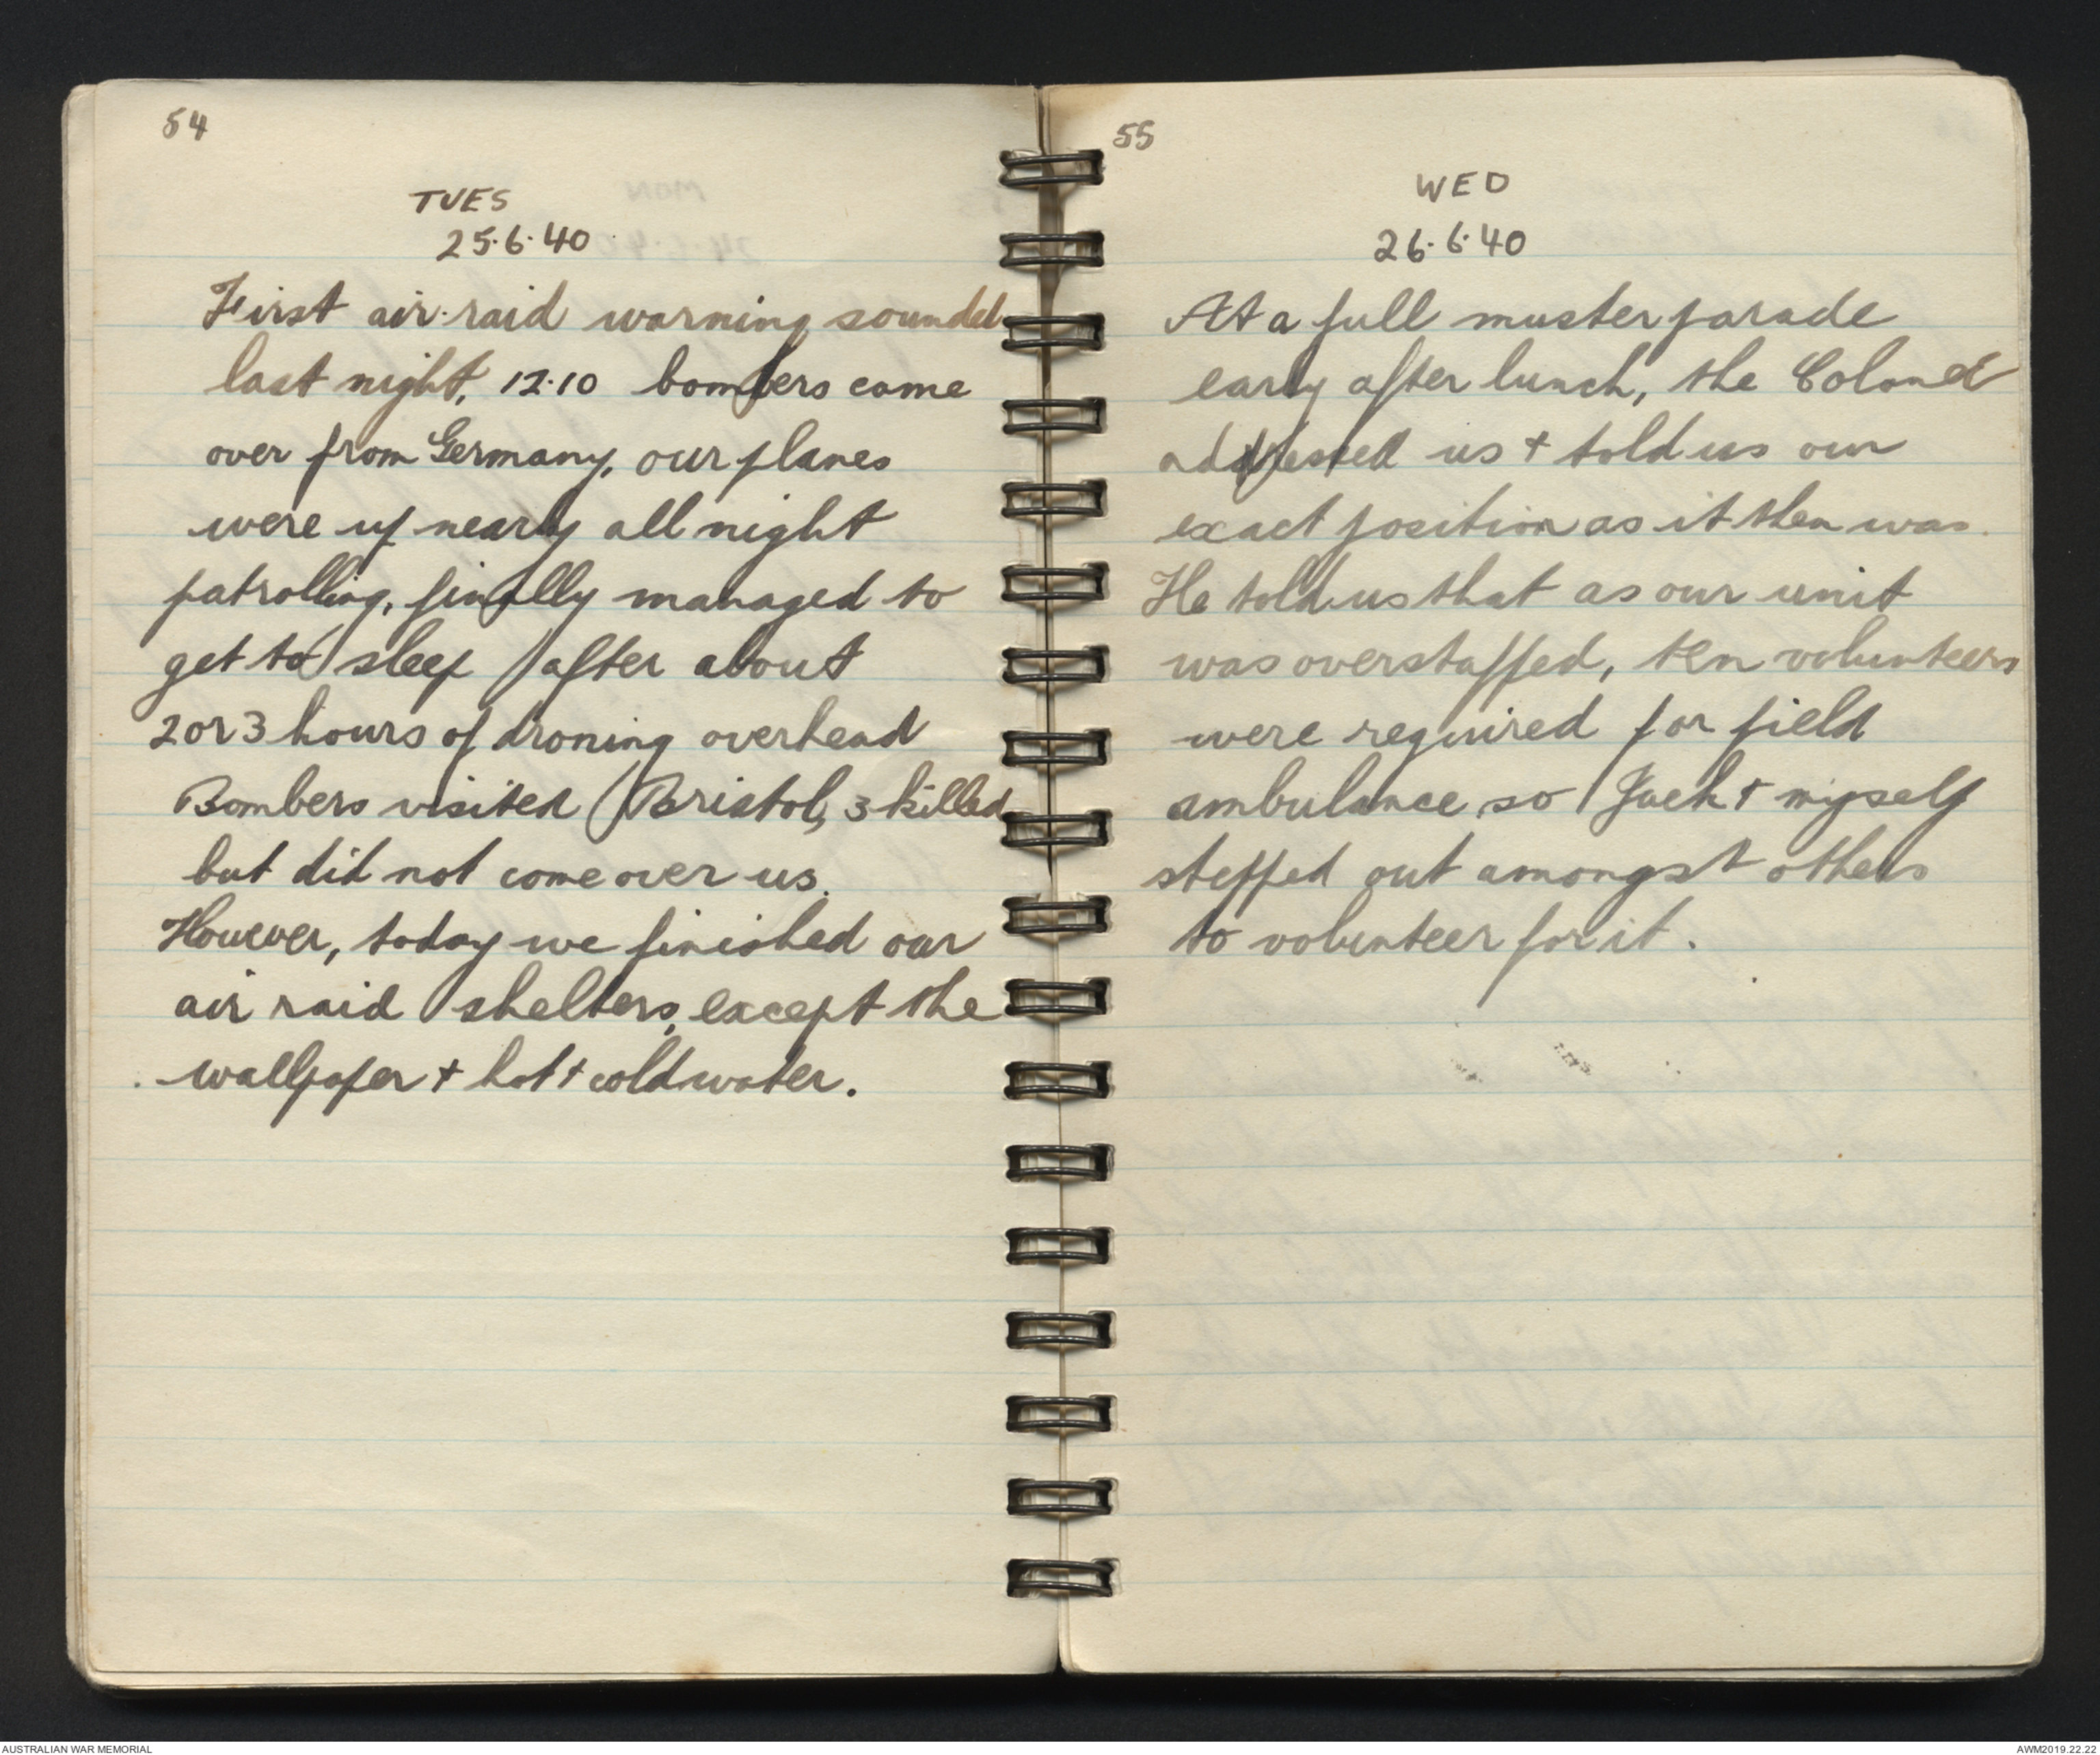 54
TUES
25.6.40
First air-raid warning sounded
last night, 12.10 bombers came
over from Germany, our planes
were up nearly all night
patrolling, finally managed to
get to sleep after about
2 or 3 hours of droning overhead
Bombers visited Bristol, 3 killed
but did not come over us.
However, today we finished our
air raid shelters, except the
wallpaper + hot + cold water.
55
WED
26.6.40
At a full muster parade
early after lunch, the Colonel
addressed us + told us our
exact position as it then was.
He told us that as our unit
was overstaffed, ten volunteers
were required for field
ambulance so Jack + myself
stepped out amongst others
to volunteer for it.
AUSTRALIAN WAR MEMORIAL
AWM2019.22.22